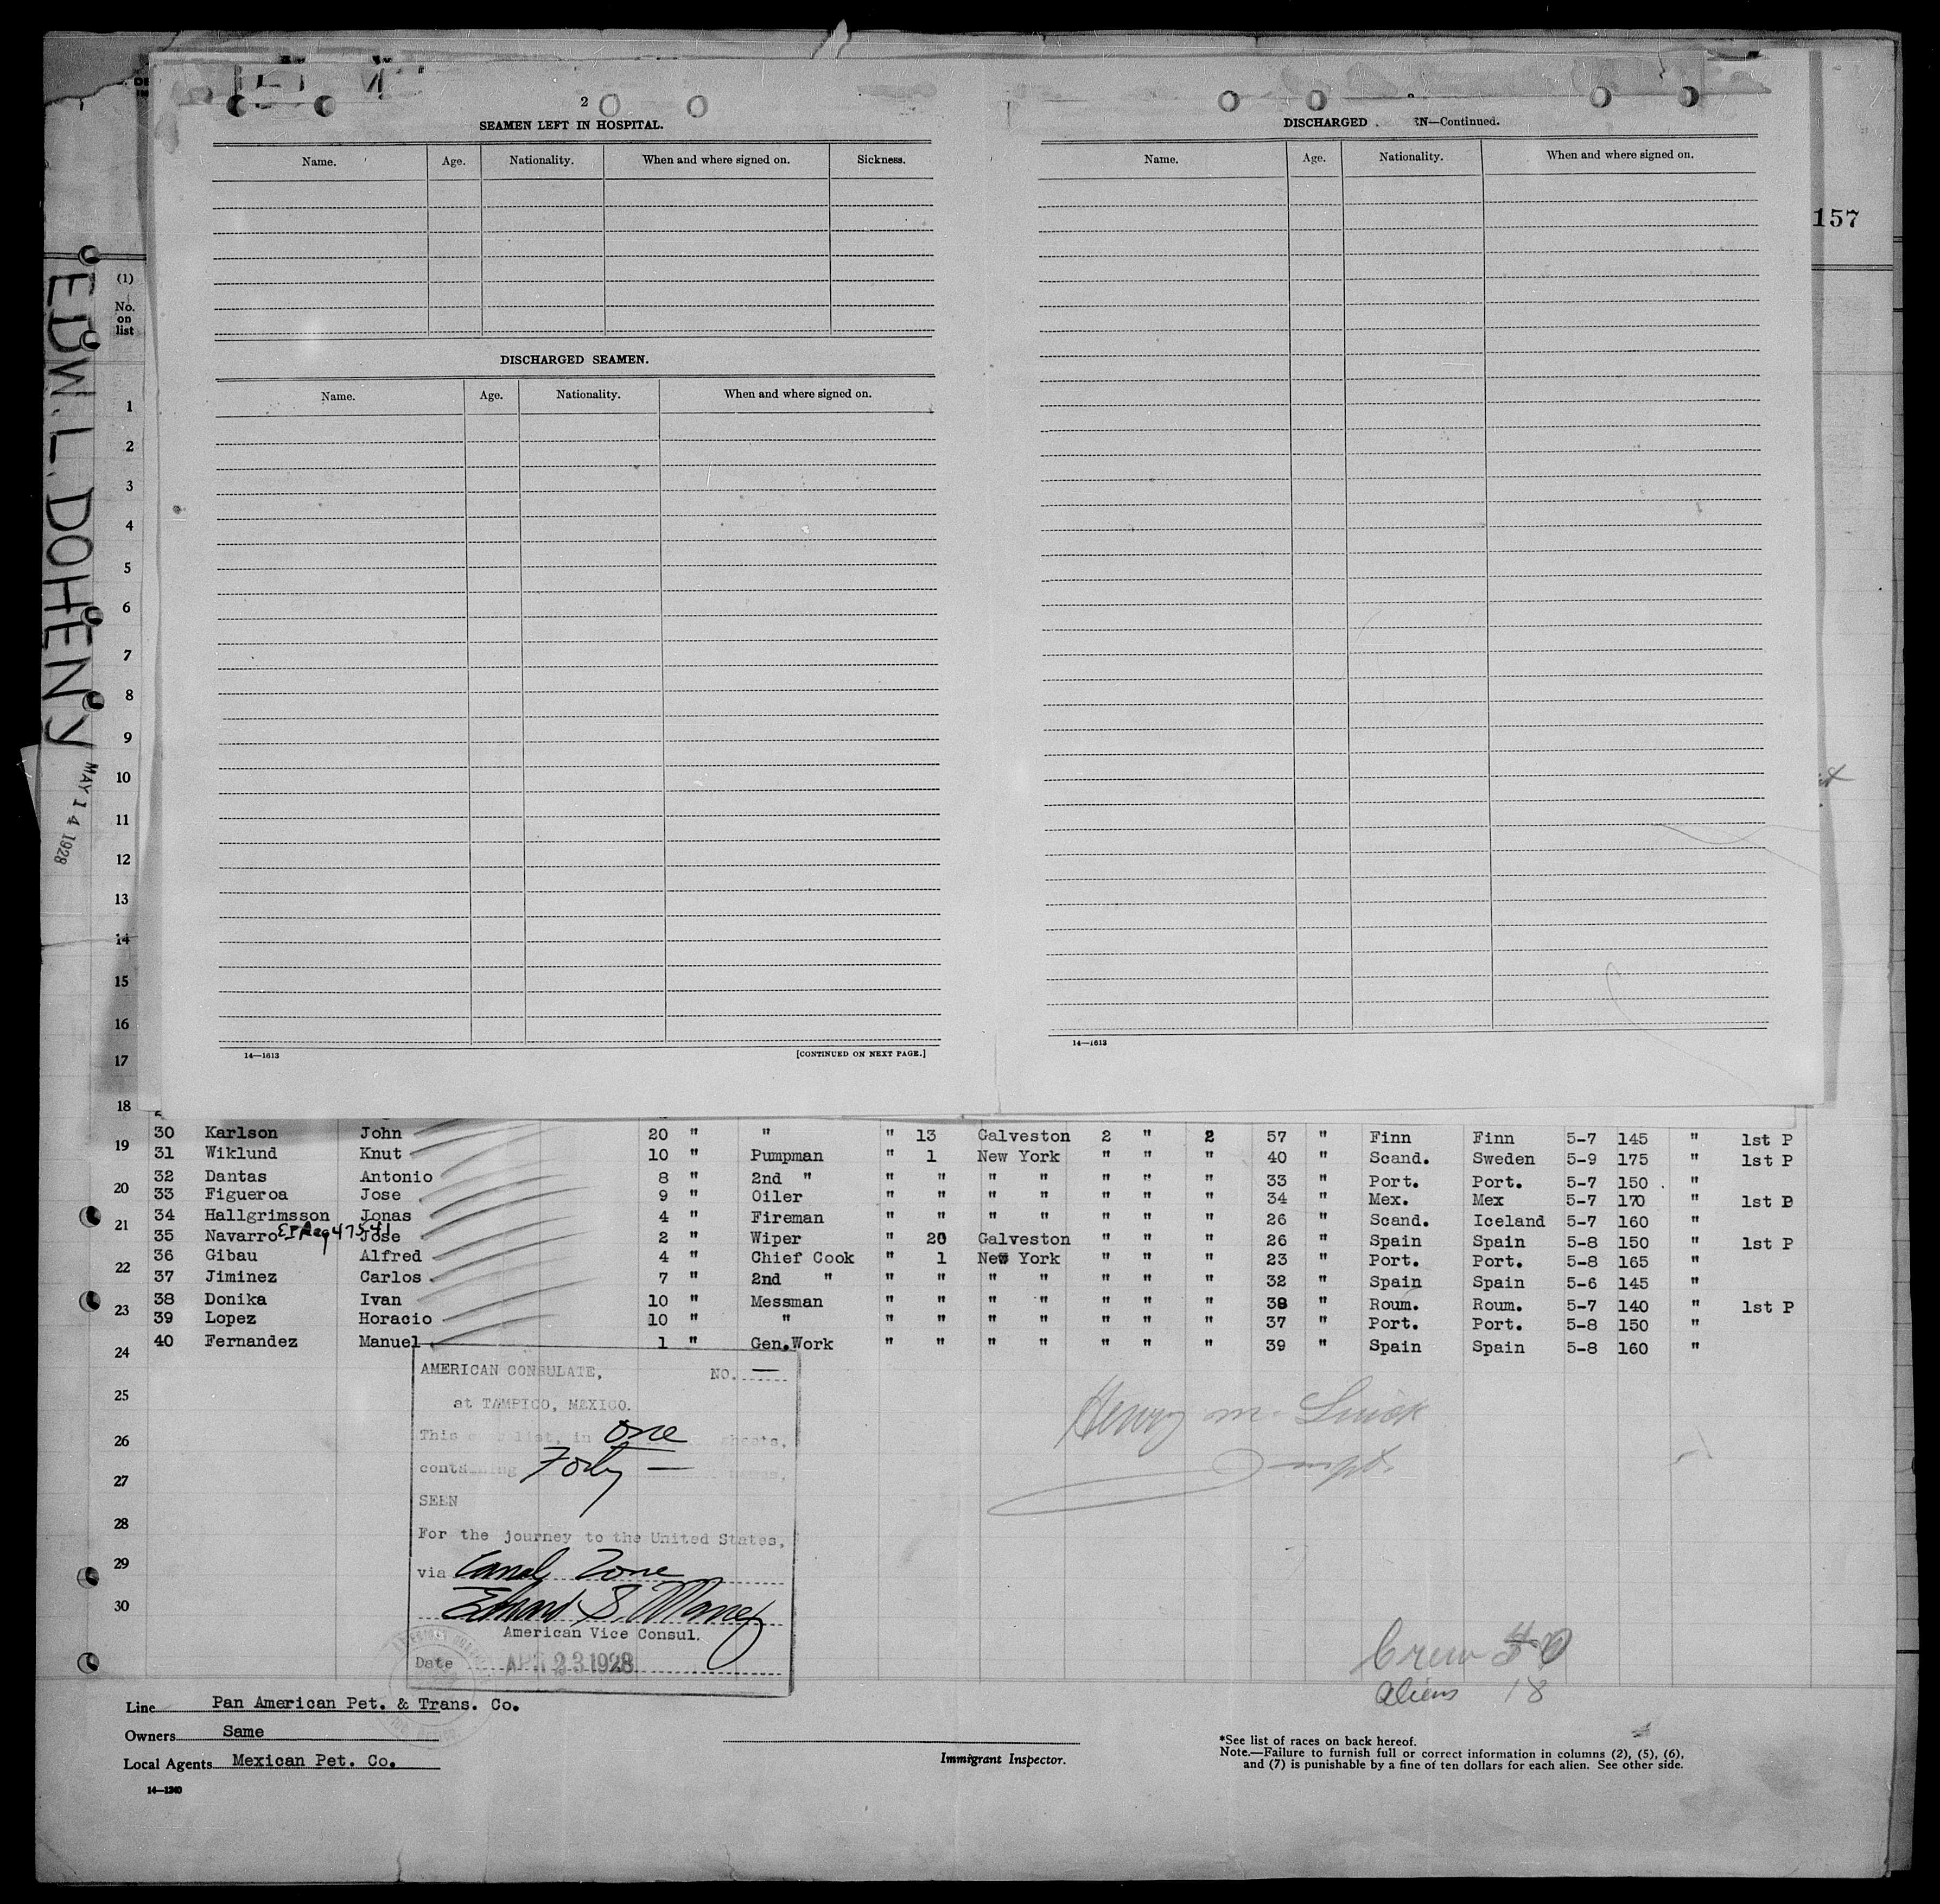 2
SEAMEN LEFT IN HOSPITAL.
Name. Age. Nationality. When and where signed on. Sickness.
DISCHARGED SEAMEN.
Name. Age. Nationality. When and where signed on.
14—1613 [CONTINUED ON NEXT PAGE.]
DISCHARGED EN—Continued.
Name. Age. Nationality. When and where signed on.
14—1613
157
EDW. L. DOHENY
MAY 14 1928
(1)
No.
on
list
1
2
3
4
5
6
7
8
9
10
11
12
13
14
15
16
17
18
19
20
21
22
23
24
25
26
27
28
29
30
30 Karlson John 20 " " " 13 Galveston 2 " 2 57 " Finn Finn 5-7 145 " 1st P
31 Wiklund Knut 10 " Pumpman " 1 New York " " " 40 " Scand. Sweden 5-9 175 " 1st P
32 Dantas Antonio 8 " 2nd " " " " " " " " 33 " Port. Port. 5-7 150 "
33 Figueroa Jose 9 " Oiler " " " " " " " 34 " Mex. Mex 5-7 170 " 1st P
34 Hallgrimsson Jonas 4 " Fireman " " " " " " " 26 " Scand. Iceland 5-7 160 "
35 Navarro Jose 2 " Wiper " 20 Galveston " " " 26 " Spain Spain 5-8 150 " 1st P
36 Gibau Alfred 4 " Chief Cook " 1 New York " " " 23 " Port. Port. 5-8 165 "
37 Jiminez Carlos 7 " 2nd " " " " " " " " 32 " Spain Spain 5-6 145 "
38 Donika Ivan 10 " Messman " " " " " " " 38 " Roum. Roum. 5-7 140 " 1st P
39 Lopez Horacio 10 " " " " " " " " " 37 " Port. Port. 5-8 150 "
40 Fernandez Manuel 1 " Gen.Work " " " " " " " 39 " Spain Spain 5-8 160 "
AMERICAN CONSULATE, NO. —
at TAMPICO, MEXICO.
This list, in one sheets,
containing Forty — names,
SEEN
For the journey to the United States,
via Canal Zone
Edward S. Maney
American Vice Consul.
Date APR 23 1928
Henry M.
Crew 40
Aliens 18
Line Pan American Pet. & Trans. Co.
Owners Same
Local Agents Mexican Pet. Co.
14—1240
Immigrant Inspector.
*See list of races on back hereof.
Note.—Failure to furnish full or correct information in columns (2), (5), (6),
and (7) is punishable by a fine of ten dollars for each alien. See other side.